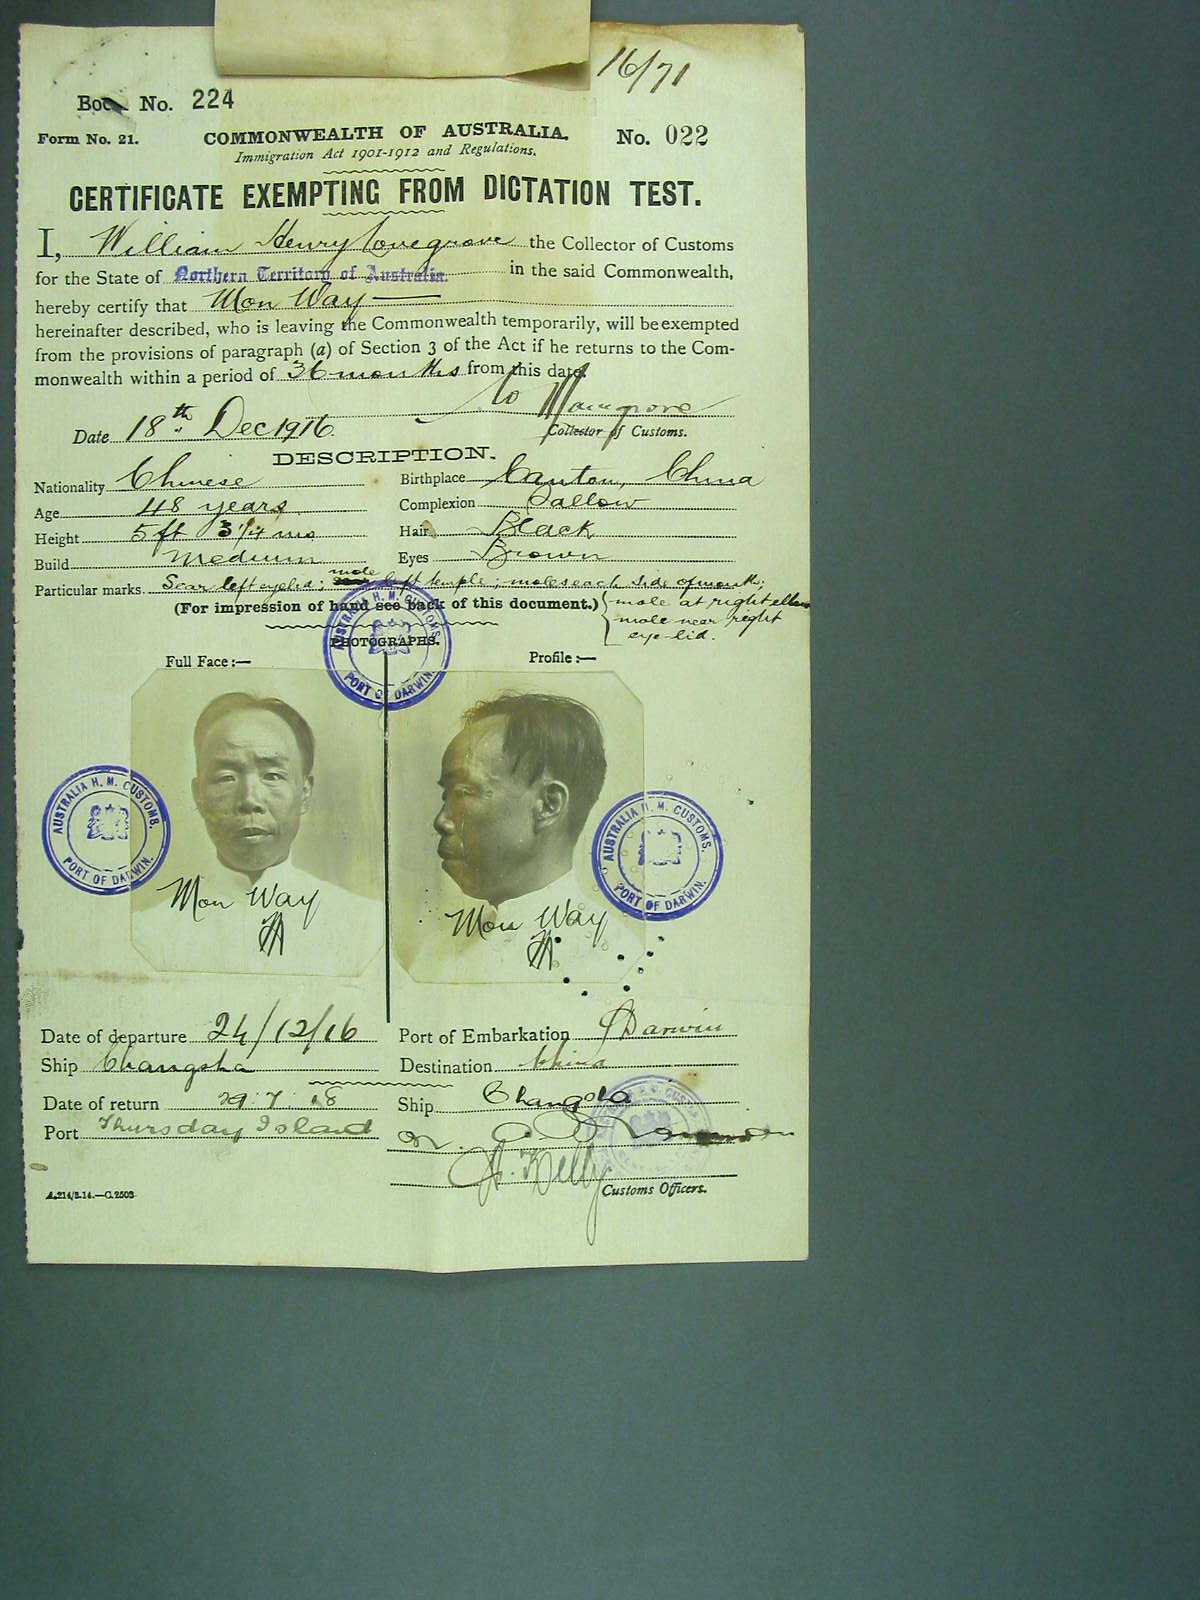 16/71
Book No. 224
Form No. 21. COMMONWEALTH OF AUSTRALIA. No. 022
Immigration Act 1901-1912 and Regulations.
CERTIFICATE EXEMPTING FROM DICTATION TEST.
I, William Henry Lovegrove the Collector of Customs
for the State of Northern Territory of Australia. in the said Commonwealth,
hereby certify that Mon Way
hereinafter described, who is leaving the Commonwealth temporarily, will be exempted
from the provisions of paragraph (a) of Section 3 of the Act if he returns to the Com-
monwealth within a period of 36 months from this date.
Date 18th Dec 1916. Collector of Customs.
DESCRIPTION.
Nationality Chinese Birthplace Canton, China
Age 48 years Complexion Sallow
Height 5 ft 3 1/4 ins Hair Black
Build medium Eyes Brown
Particular marks Scar left eyelid; mole left temple; moles each side of mouth;
(For impression of hand see back of this document.) mole at right elbow
mole near right
eye-lid.
PHOTOGRAPHS.
Full Face:— Profile:—
AUSTRALIA H. M. CUSTOMS. PORT OF DARWIN.
AUSTRALIA H. M. CUSTOMS. PORT OF DARWIN.
AUSTRALIA H. M. CUSTOMS. PORT OF DARWIN.
Mon Way Mon Way
Date of departure 24/12/16 Port of Embarkation Darwin
Ship Changsha Destination China
Date of return 29.7.18 Ship Changsha
Port Thursday Island
H. Kelly
Customs Officers.
A.214/3.14.—C.2503